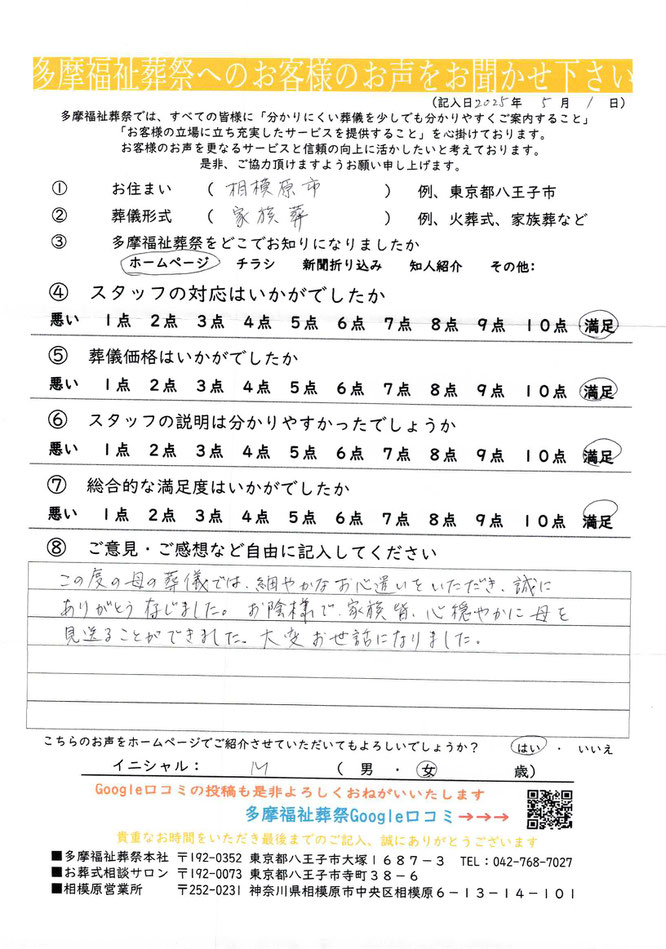 多摩福祉葬祭へのお客様のお声をお聞かせ下さい
(記入日2025年 5月 1日)
多摩福祉葬祭では、すべての皆様に「分かりにくい葬儀を少しでも分かりやすくご案内すること」
「お客様の立場に立ち充実したサービスを提供すること」を心掛けております。
お客様のお声を更なるサービスと信頼の向上に活かしたいと考えております。
是非、ご協力頂けますようお願い申し上げます。
① お住まい ( 相模原市 ) 例、東京都八王子市
② 葬儀形式 ( 家族葬 ) 例、火葬式、家族葬など
③ 多摩福祉葬祭をどこでお知りになりましたか
ホームページ チラシ 新聞折り込み 知人紹介 その他:
④ スタッフの対応はいかがでしたか
悪い 1点 2点 3点 4点 5点 6点 7点 8点 9点 10点 満足
⑤ 葬儀価格はいかがでしたか
悪い 1点 2点 3点 4点 5点 6点 7点 8点 9点 10点 満足
⑥ スタッフの説明は分かりやすかったでしょうか
悪い 1点 2点 3点 4点 5点 6点 7点 8点 9点 10点 満足
⑦ 総合的な満足度はいかがでしたか
悪い 1点 2点 3点 4点 5点 6点 7点 8点 9点 10点 満足
⑧ ご意見・ご感想など自由に記入してください
この度の母の葬儀では、細やかなお心遣いをいただき、誠に
ありがとう存じました。お陰様で、家族皆、心穏やかに母を
見送ることができました。大変お世話になりました。
こちらのお声をホームページでご紹介させていただいてもよろしいでしょうか? はい ・ いいえ
イニシャル: M ( 男 ・ 女 歳)
Google口コミの投稿も是非よろしくおねがいいたします
多摩福祉葬祭Google口コミ→→→
貴重なお時間をいただき最後までのご記入、誠にありがとうございます
■多摩福祉葬祭本社 〒192-0352 東京都八王子市大塚1687-3 TEL:042-768-7027
■お葬式相談サロン 〒192-0073 東京都八王子市寺町38-6
■相模原営業所 〒252-0231 神奈川県相模原市中央区相模原6-13-14-101